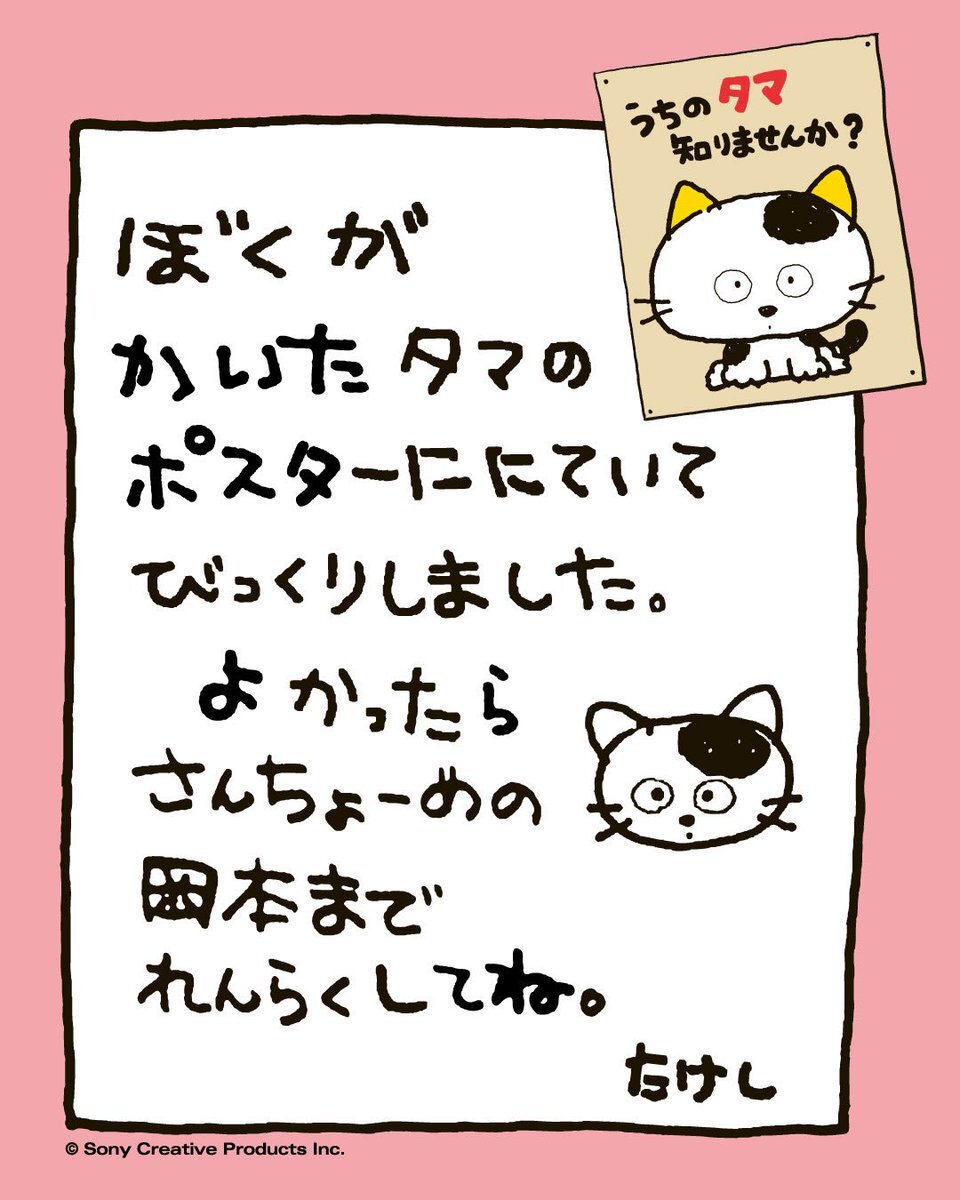 うちのタマ
知りませんか?
ぼくが
かいたタマの
ポスターににていて
びっくりしました。
よかったら
さんちょーめの
岡本まで
れんらくしてね。
たけし
© Sony Creative Products Inc.